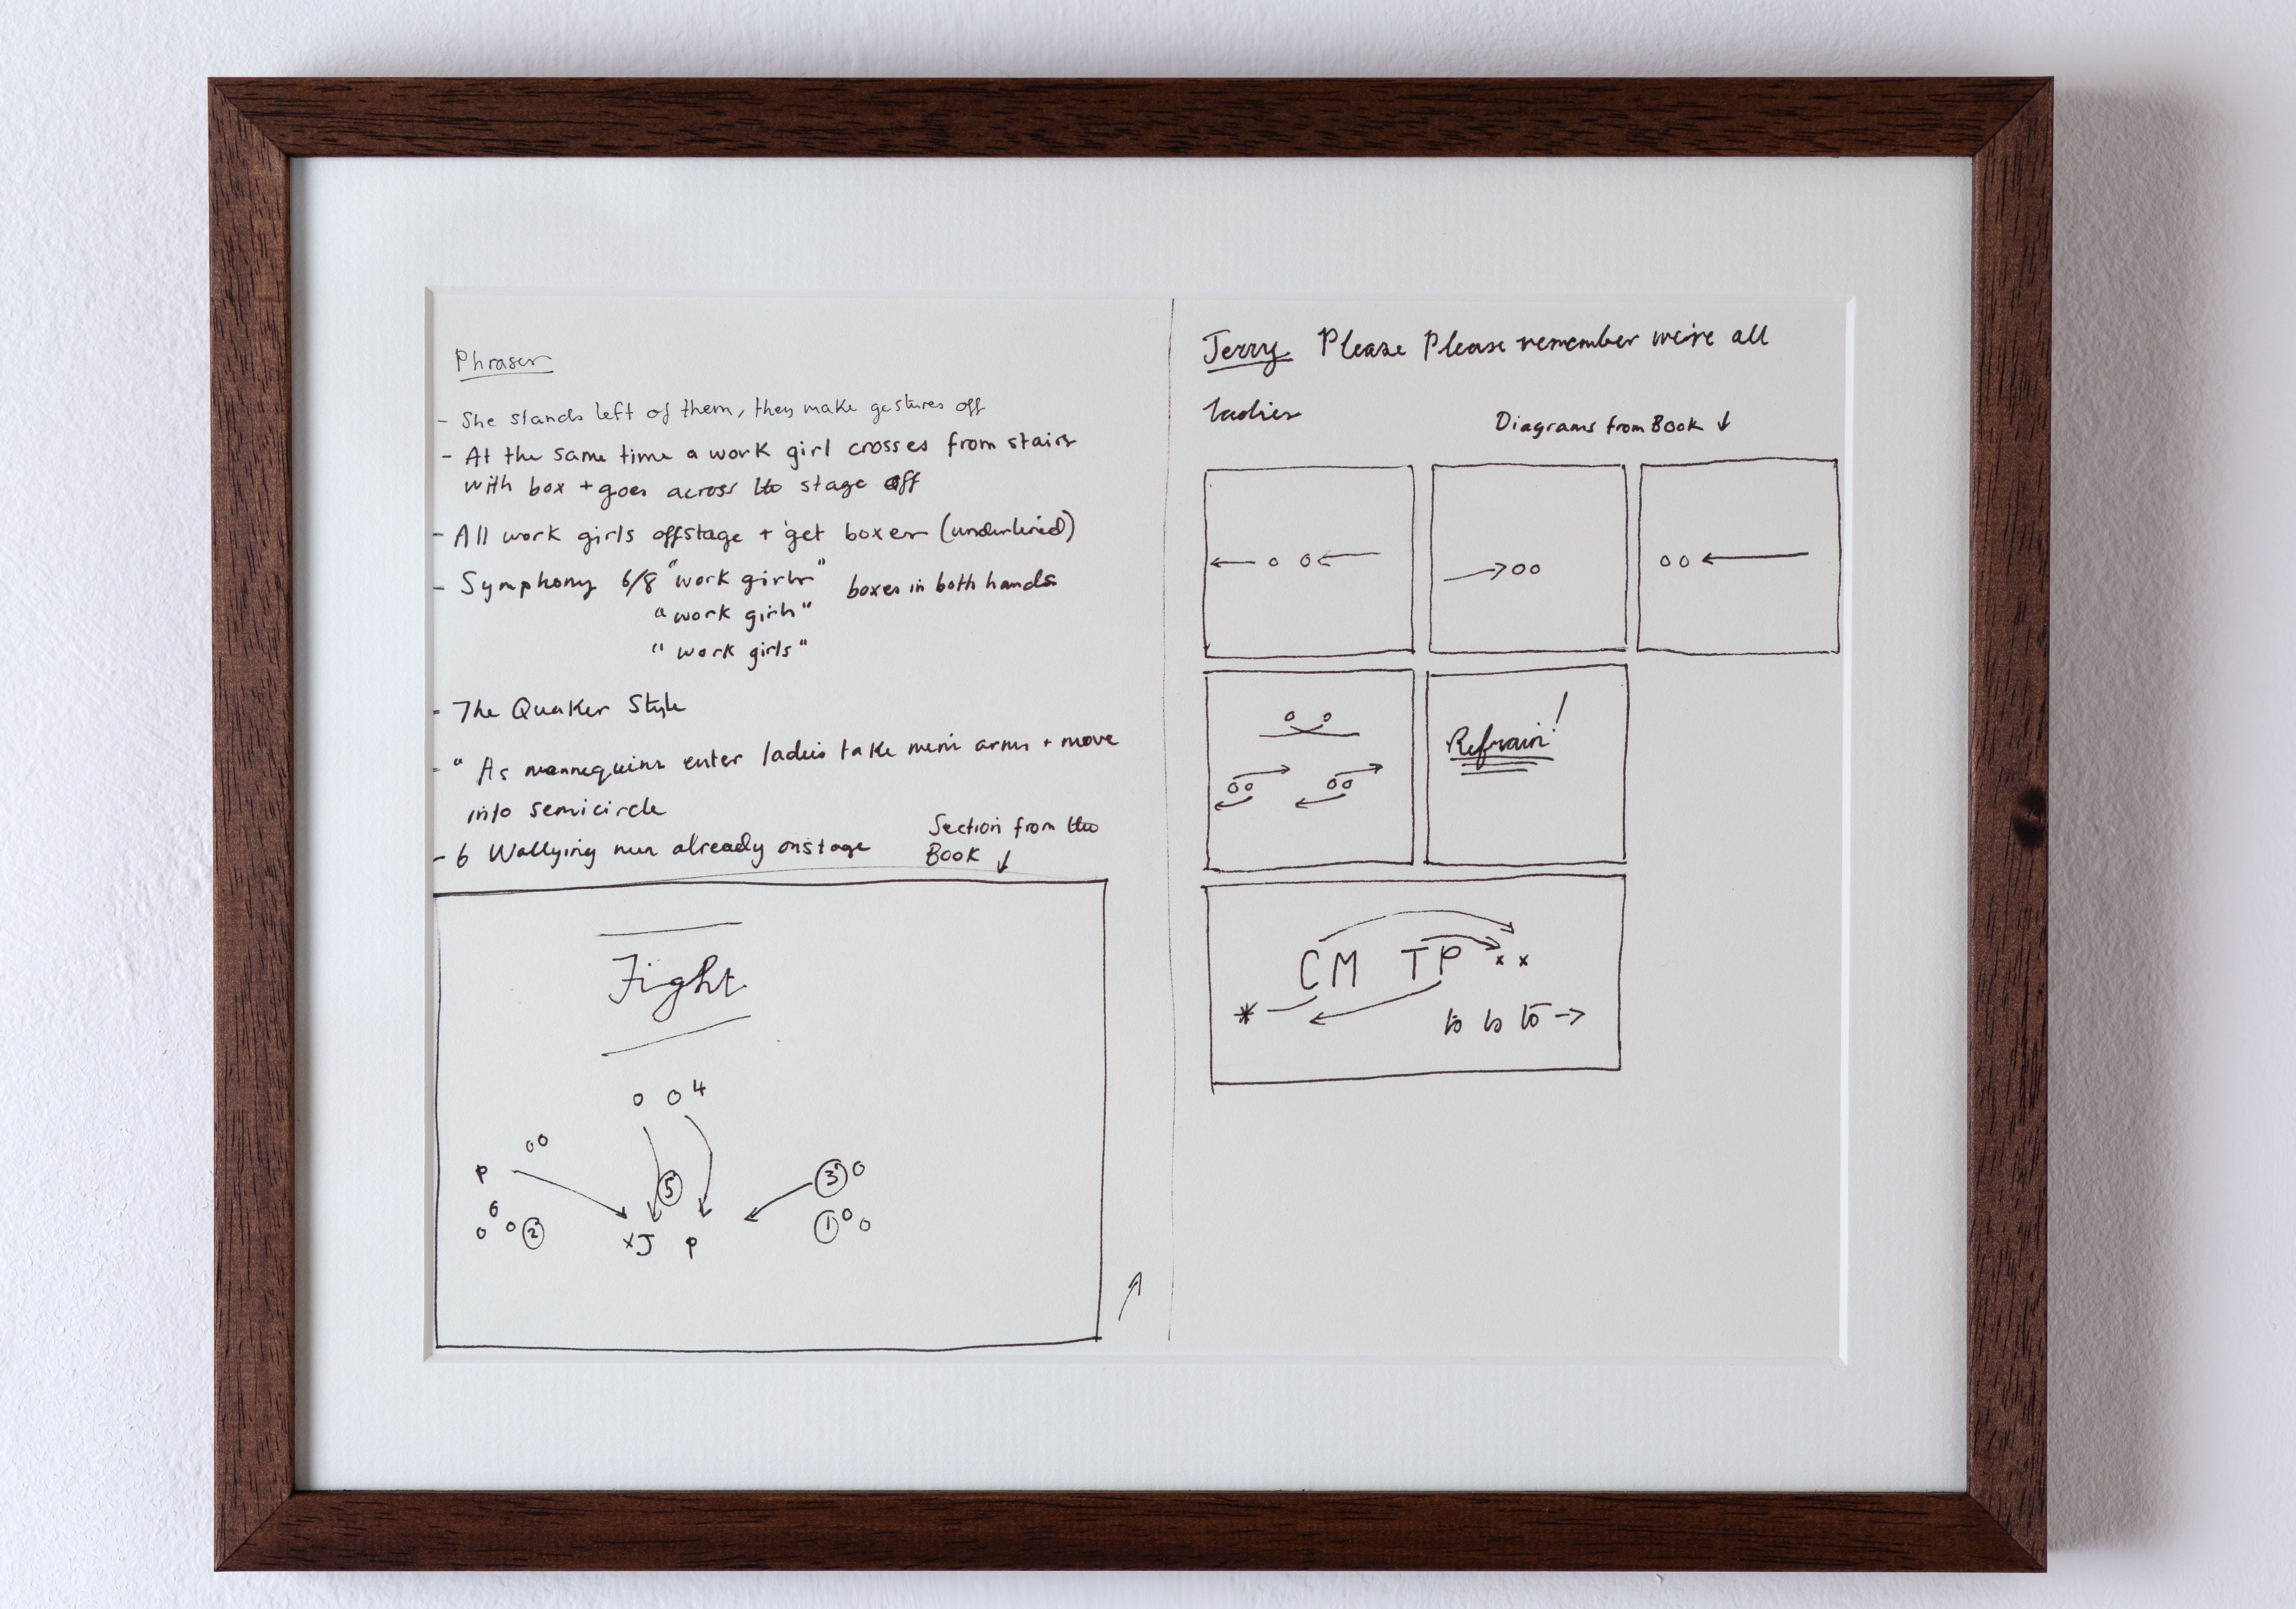 Phrases
- She stands left of them, they make gestures off
- At the same time a work girl crosses from stairs
with box + goes across the stage off
- All work girls offstage + get boxes (underlined)
- Symphony 6/8 "work girls" boxes in both hands
"work girls"
"work girls"
- The Quaker Style
- " As mannequins enter ladies take men's arms + move
into semicircle
- 6 men already onstage
Section from the
Book ↓
Fight
o o 4
oo
P
5
3 o
o
o o 2
1 o o
x J P
Jerry Please Please remember we're all
ladies
Diagrams from Book ↓
Refrain!
CM TP x x
*